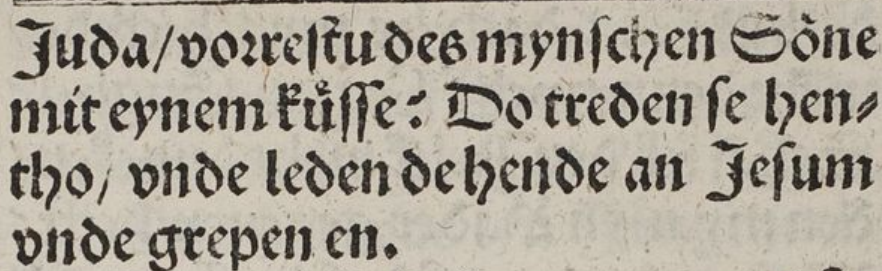 Juda/ vorrestu des mynschen Söne
mit eynem küsse? Do treden se hen⸗
tho/ vnde leden de hende an Jesum
vnde grepen en.